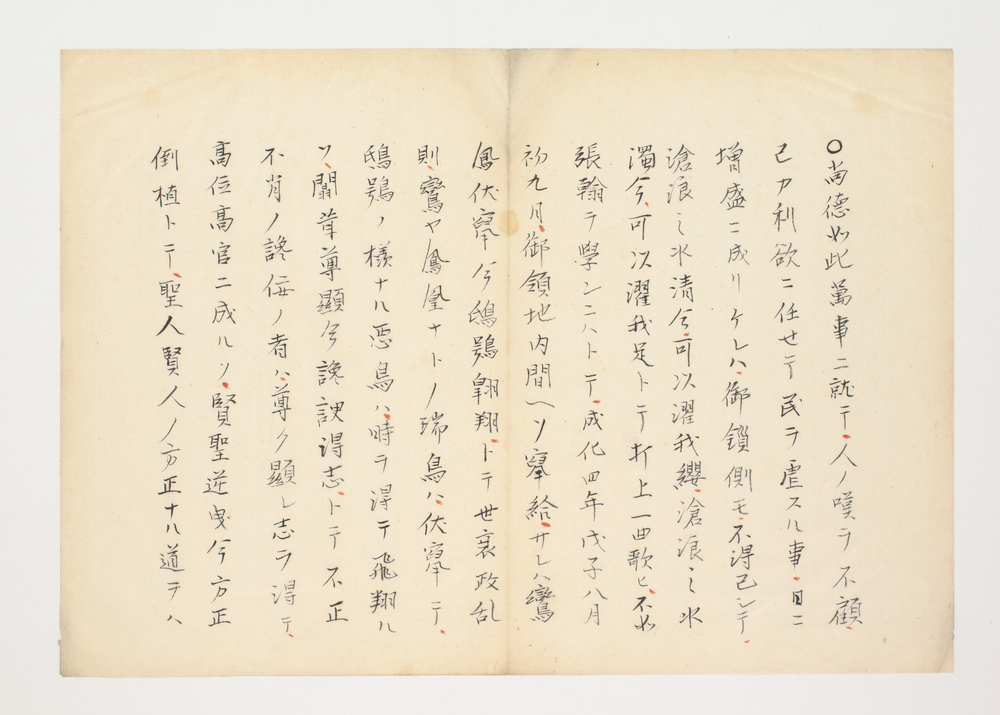 ○尚德如此萬事ニ就テ、人ノ嘆ヲ不顧、
己カ利欲ニ任せテ民ヲ虐スル事、日ニ
増盛ニ成リケレハ、御鎖側モ、不得已シテ、
滄浪之水清兮、可以濯我纓、滄浪之水
濁兮、可以濯我足トテ打上一曲歌ヒ、不如
張翰ヲ學ンニハトテ、成化四年戊子八月
初九日、御領地内間ヘソ挙給、サレハ鸞
鳳伏竄兮鴟鴞翺翔、トテ世衰政乱
則、鸞ヤ鳳凰ナトノ瑞鳥ハ、伏竄テ、
鴟鴞ノ様ナル悪鳥ハ、時ヲ得テ飛翔ル
ソ、闒茸尊顯兮讒諛得志、トテ不正
不肖ノ讒侫ノ者ハ、尊ク顯レ志ヲ得テ、
高位高官ニ成ルソ、賢聖逆曳兮方正
倒植トテ、聖人賢人ノ方正ナル道ヲハ